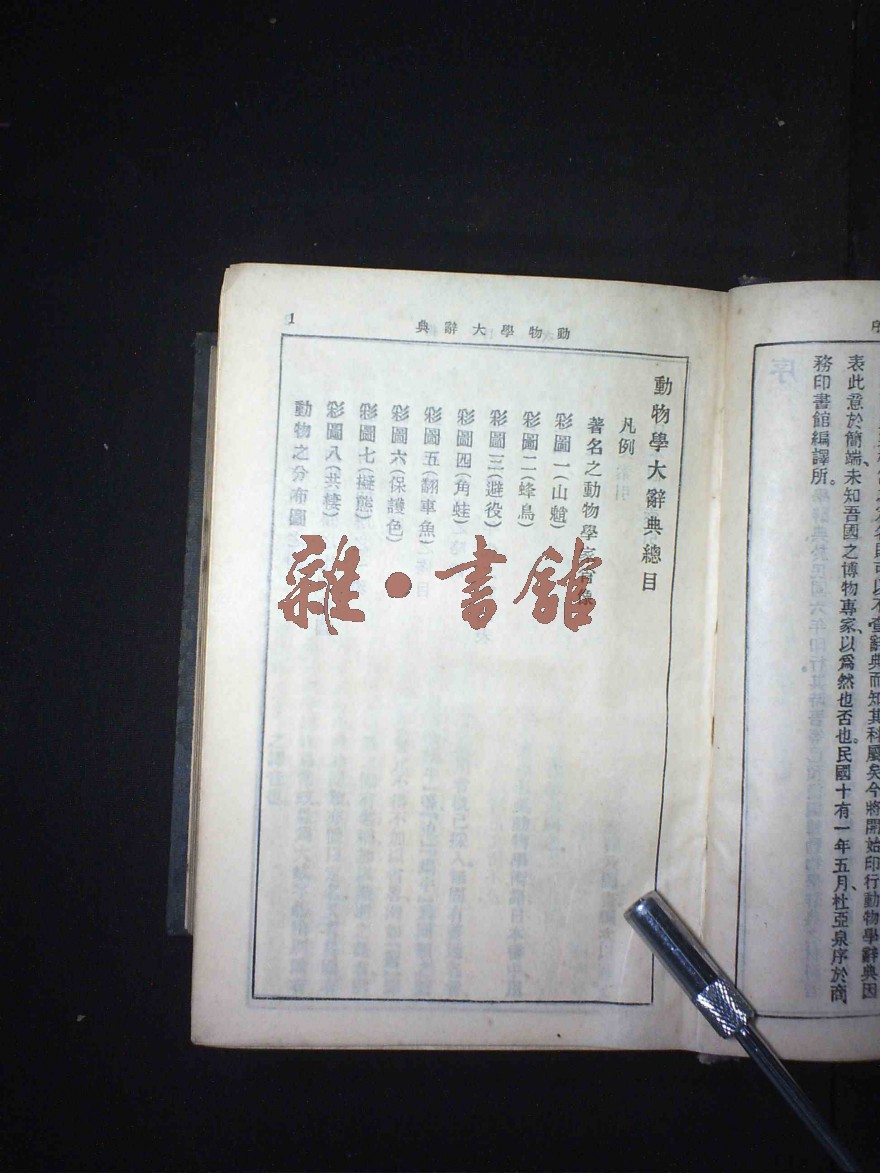 表此意於簡端、未知吾國之博物專家、以爲然也否也。民國十有一年五月、杜亞泉序於商
務印書館編譯所。
1
動物學大辭典
動物學大辭典總目
凡例
著名之動物學家肖像
彩圖一(山魈)
彩圖二(蜂鳥)
彩圖三(避役)
彩圖四(角蛙)
彩圖五(翻車魚)
彩圖六(保護色)
彩圖七(擬態)
彩圖八(共棲)
動物之分布圖
雜·書館